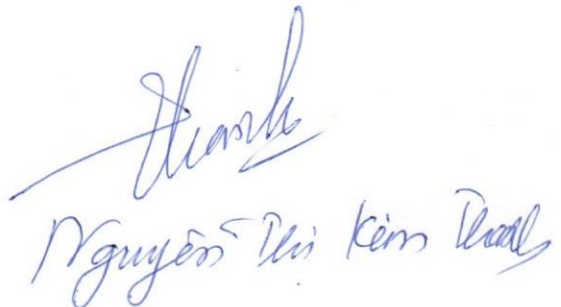 Thanh
Nguyễn Thị Kim Thanh